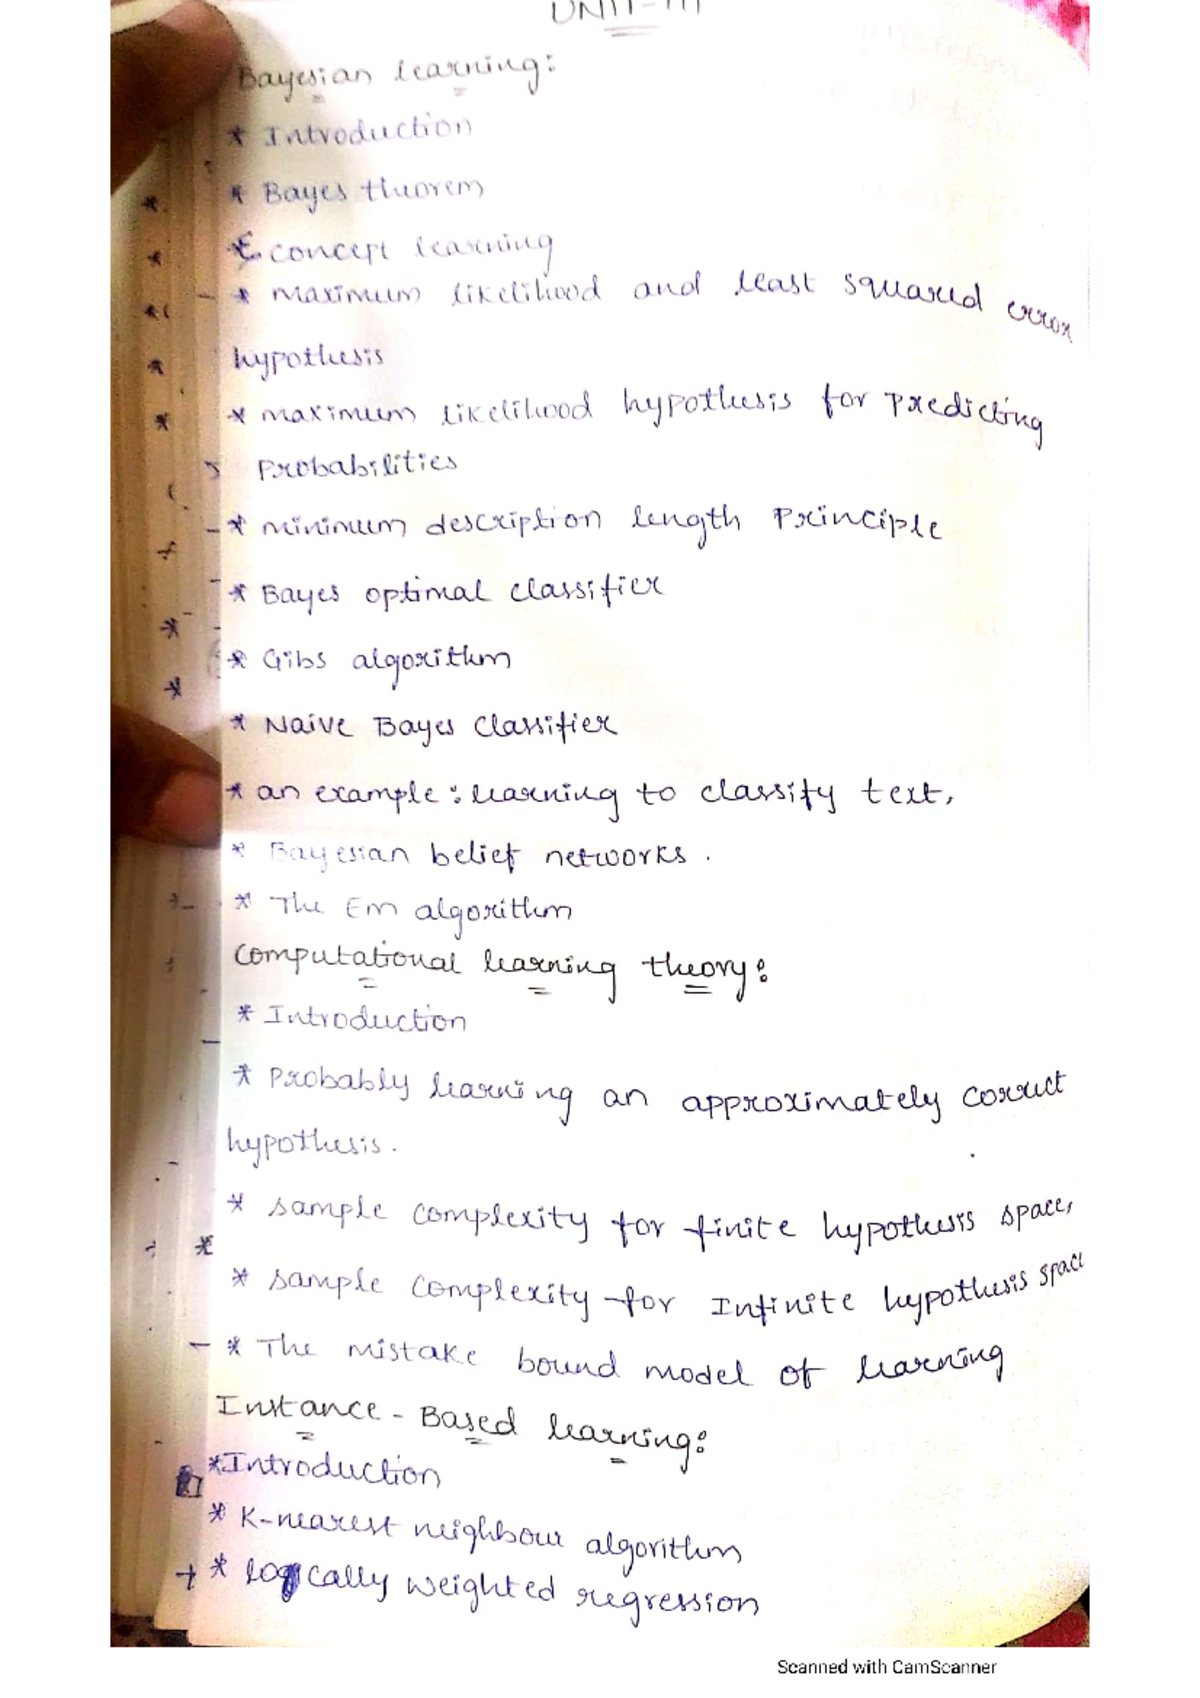 UNIT-III
Bayesian learning:
* Introduction
* Bayes theorem
* concept learning
* maximum likelihood and least squared error
hypothesis
* maximum likelihood hypothesis for predicting
Probabilities
* minimum description length Principle
* Bayes optimal classifier
* Gibs algorithm
* Naive Bayes Classifier
* an example: learning to classify text,
* Bayesian belief networks.
* The Em algorithm
Computational learning theory:
* Introduction
* Probably learning an approximately correct
hypothesis.
* sample complexity for finite hypothesis space,
* sample complexity for Infinite hypothesis space
* The mistake bound model of learning
Instance-Based learning:
* Introduction
* K-nearest neighbour algorithm
* cally weighted regression
Scanned with CamScanner